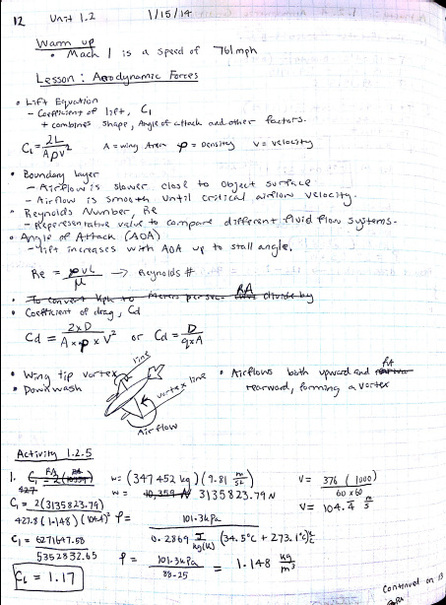 12 Unit 1.2 1/15/14
Warm up
• Mach 1 is a speed of 761mph
Lesson: Aerodynamic Forces
• Lift Equation
- Coefficient of lift, CL
+ combines shape, Angle of attack and other factors.
CL = 2L / Aρv² A = wing Area ρ = Density V = velocity
• Boundary layer
- Airflow is slower close to object surface
- Airflow is smooth until critical airflow velocity.
• Reynolds Number, Re
- Representative value to compare different fluid flow systems.
• Angle of Attack (AOA)
- lift increases with AOA up to stall angle.
Re = ρvL / μ → Reynolds #
• To convert kph to Meters per sec divide by RA
• Coefficient of drag, Cd
Cd = 2×D / A×ρ×V² or Cd = D / q×A
• Wing tip vortex
• Downwash
line
vortex line
Airflow
• Airflows both upward and RA
rearward, forming a vortex
Activity 1.2.5
1. w= (347452 kg)(9.81 m/s²) V= 376 (1000) / 60×60
w= 3135823.79 N V= 104.4 m/s
CL = 2(3135823.79) / 427.8(1.148)(104.4)² ρ= 101.3kPa / 0.2869 J/kg(K) (34.5°C + 273.1°C)
CL = 6271647.58 / 5352832.65 ρ= 101.3kPa / 88.25 = 1.148 kg/m³
CL = 1.17
Continued on 13